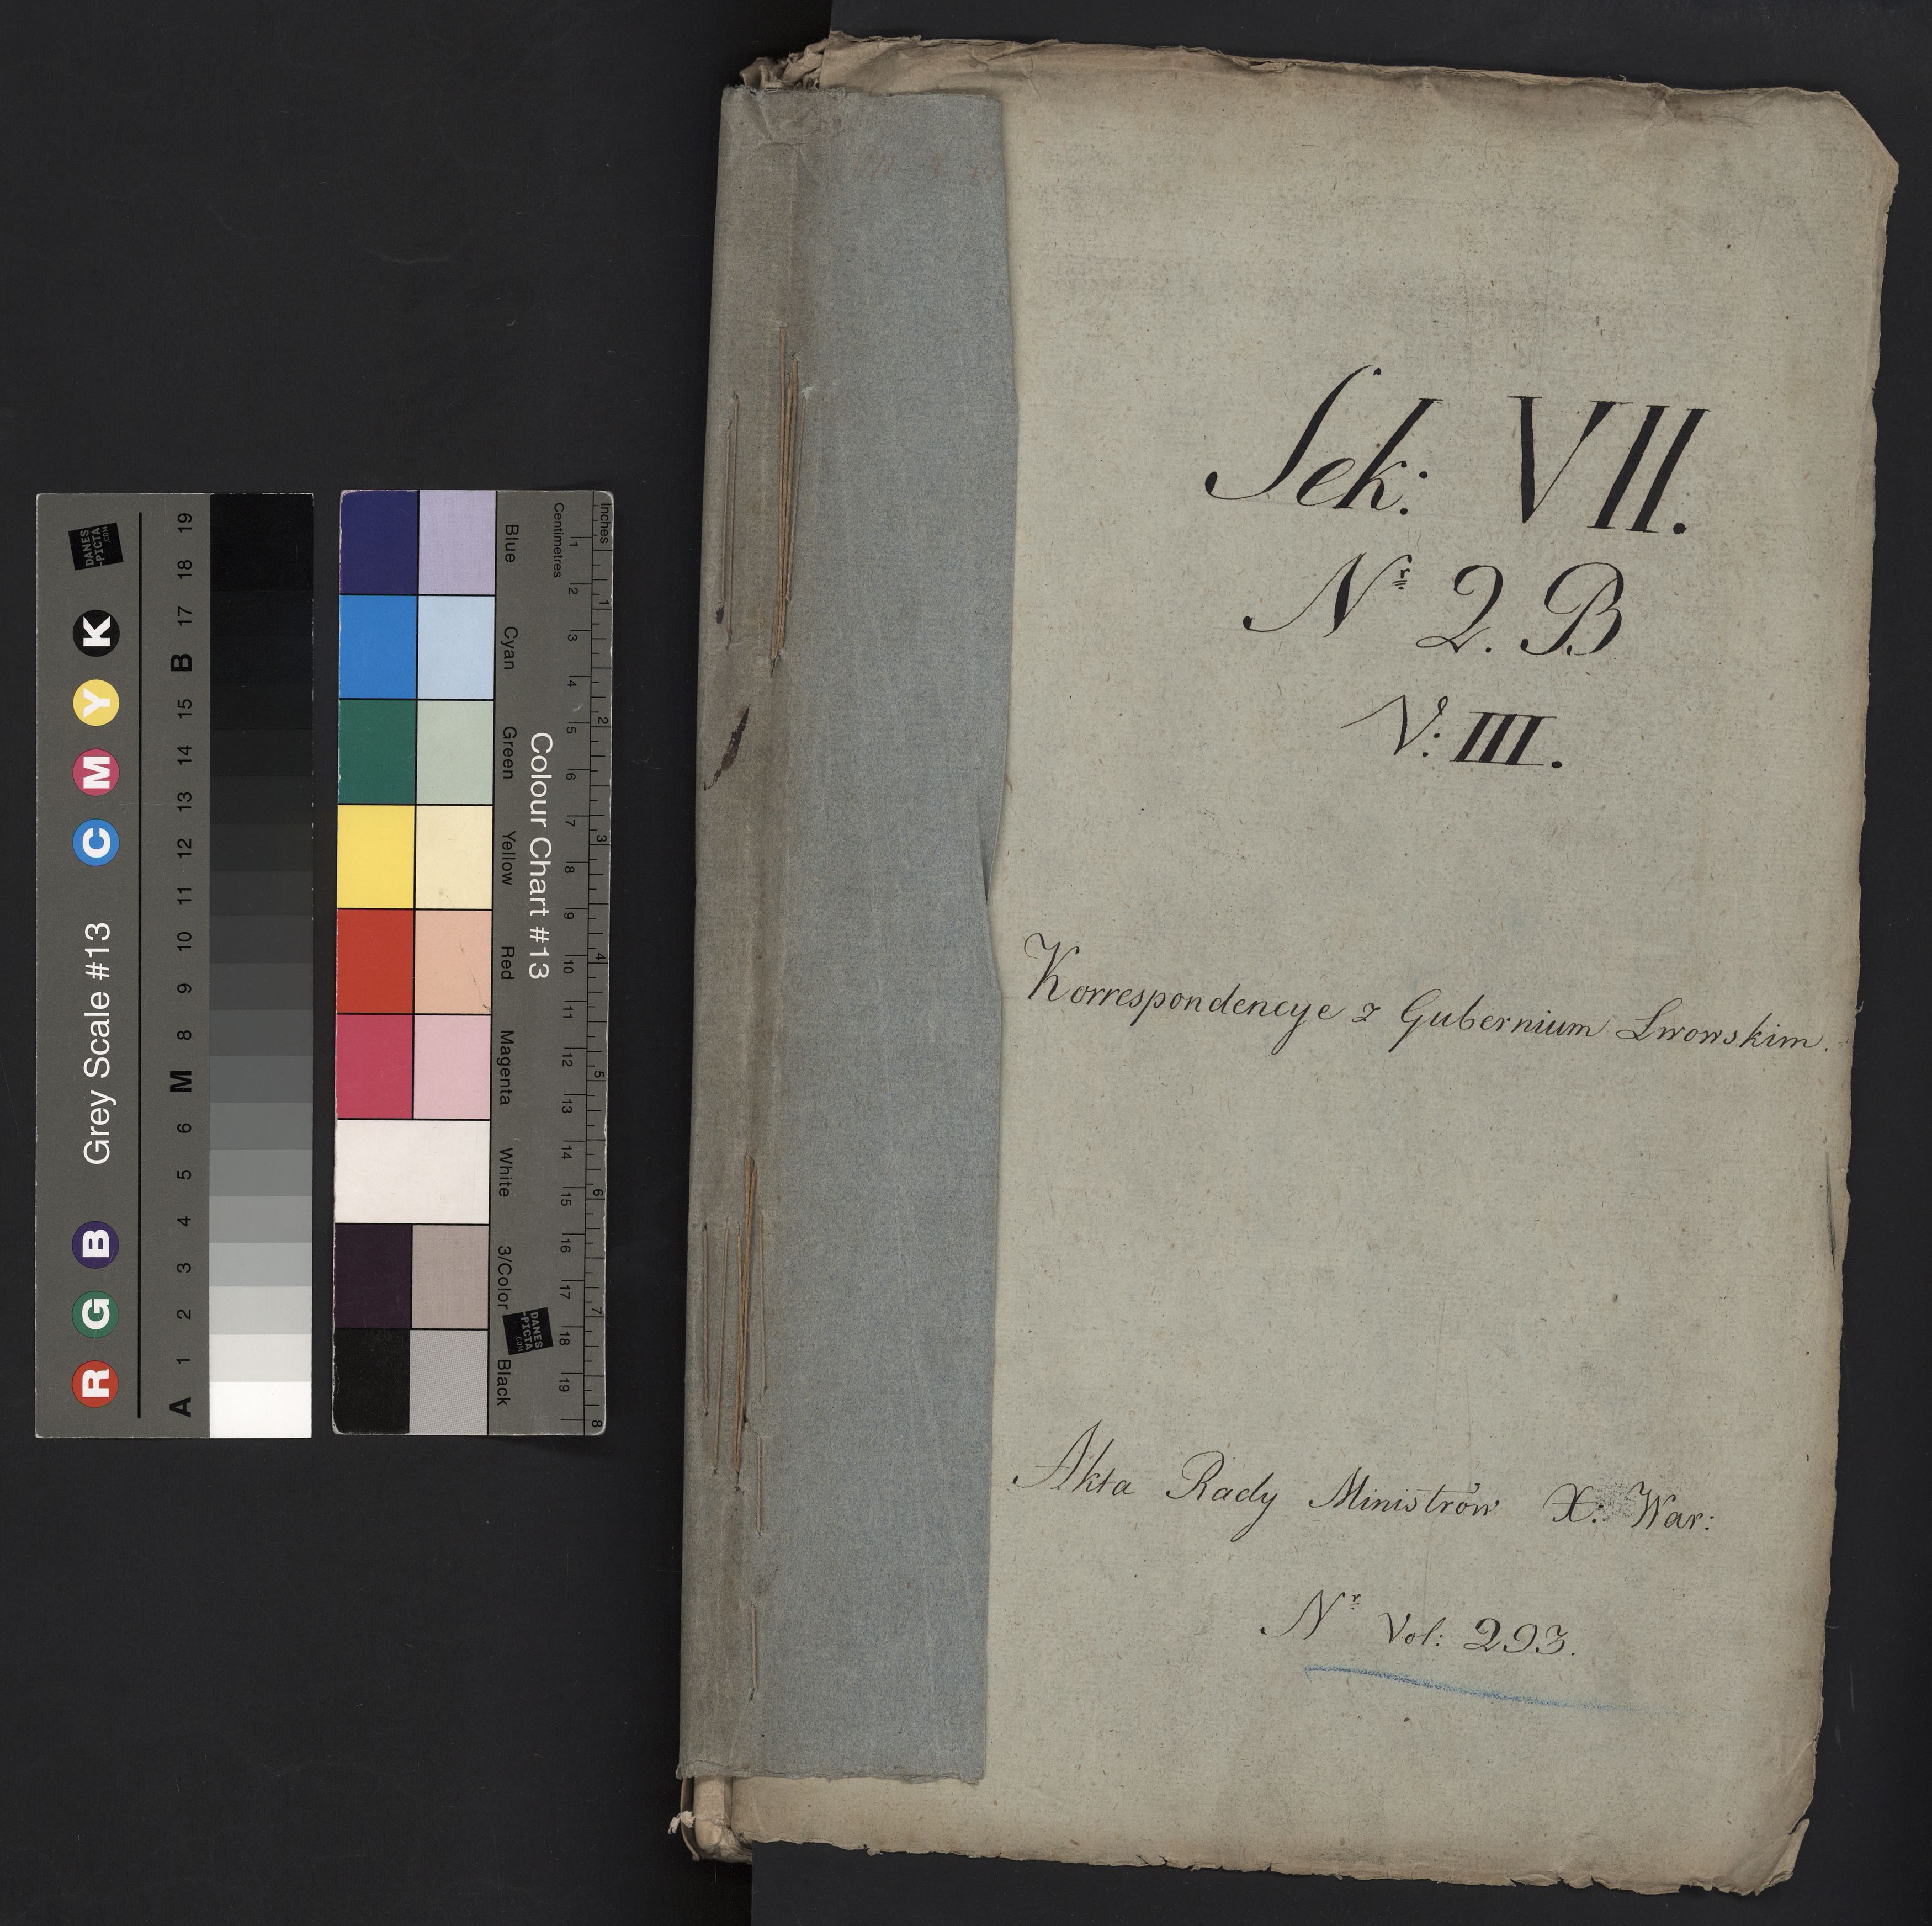 Sek: VII.
Nr 2. B
V: III.
Korrespondencye z Gubernium Lwowskim.
Akta Rady Ministrów X. War:
Nr Vol: 293.
Grey Scale #13
R G B C M Y K
A 1 2 3 4 5 6 M 8 9 10 11 12 13 14 15 B 17 18 19
DANES
-PICTA
.COM
Colour Chart #13
Blue Cyan Green Yellow Red Magenta White 3/Color Black
Centimetres 1 2 3 4 5 6 7 8 9 10 11 12 13 14 15 16 17 18 19
Inches 1 2 3 4 5 6 7 8
DANES
-PICTA
.COM